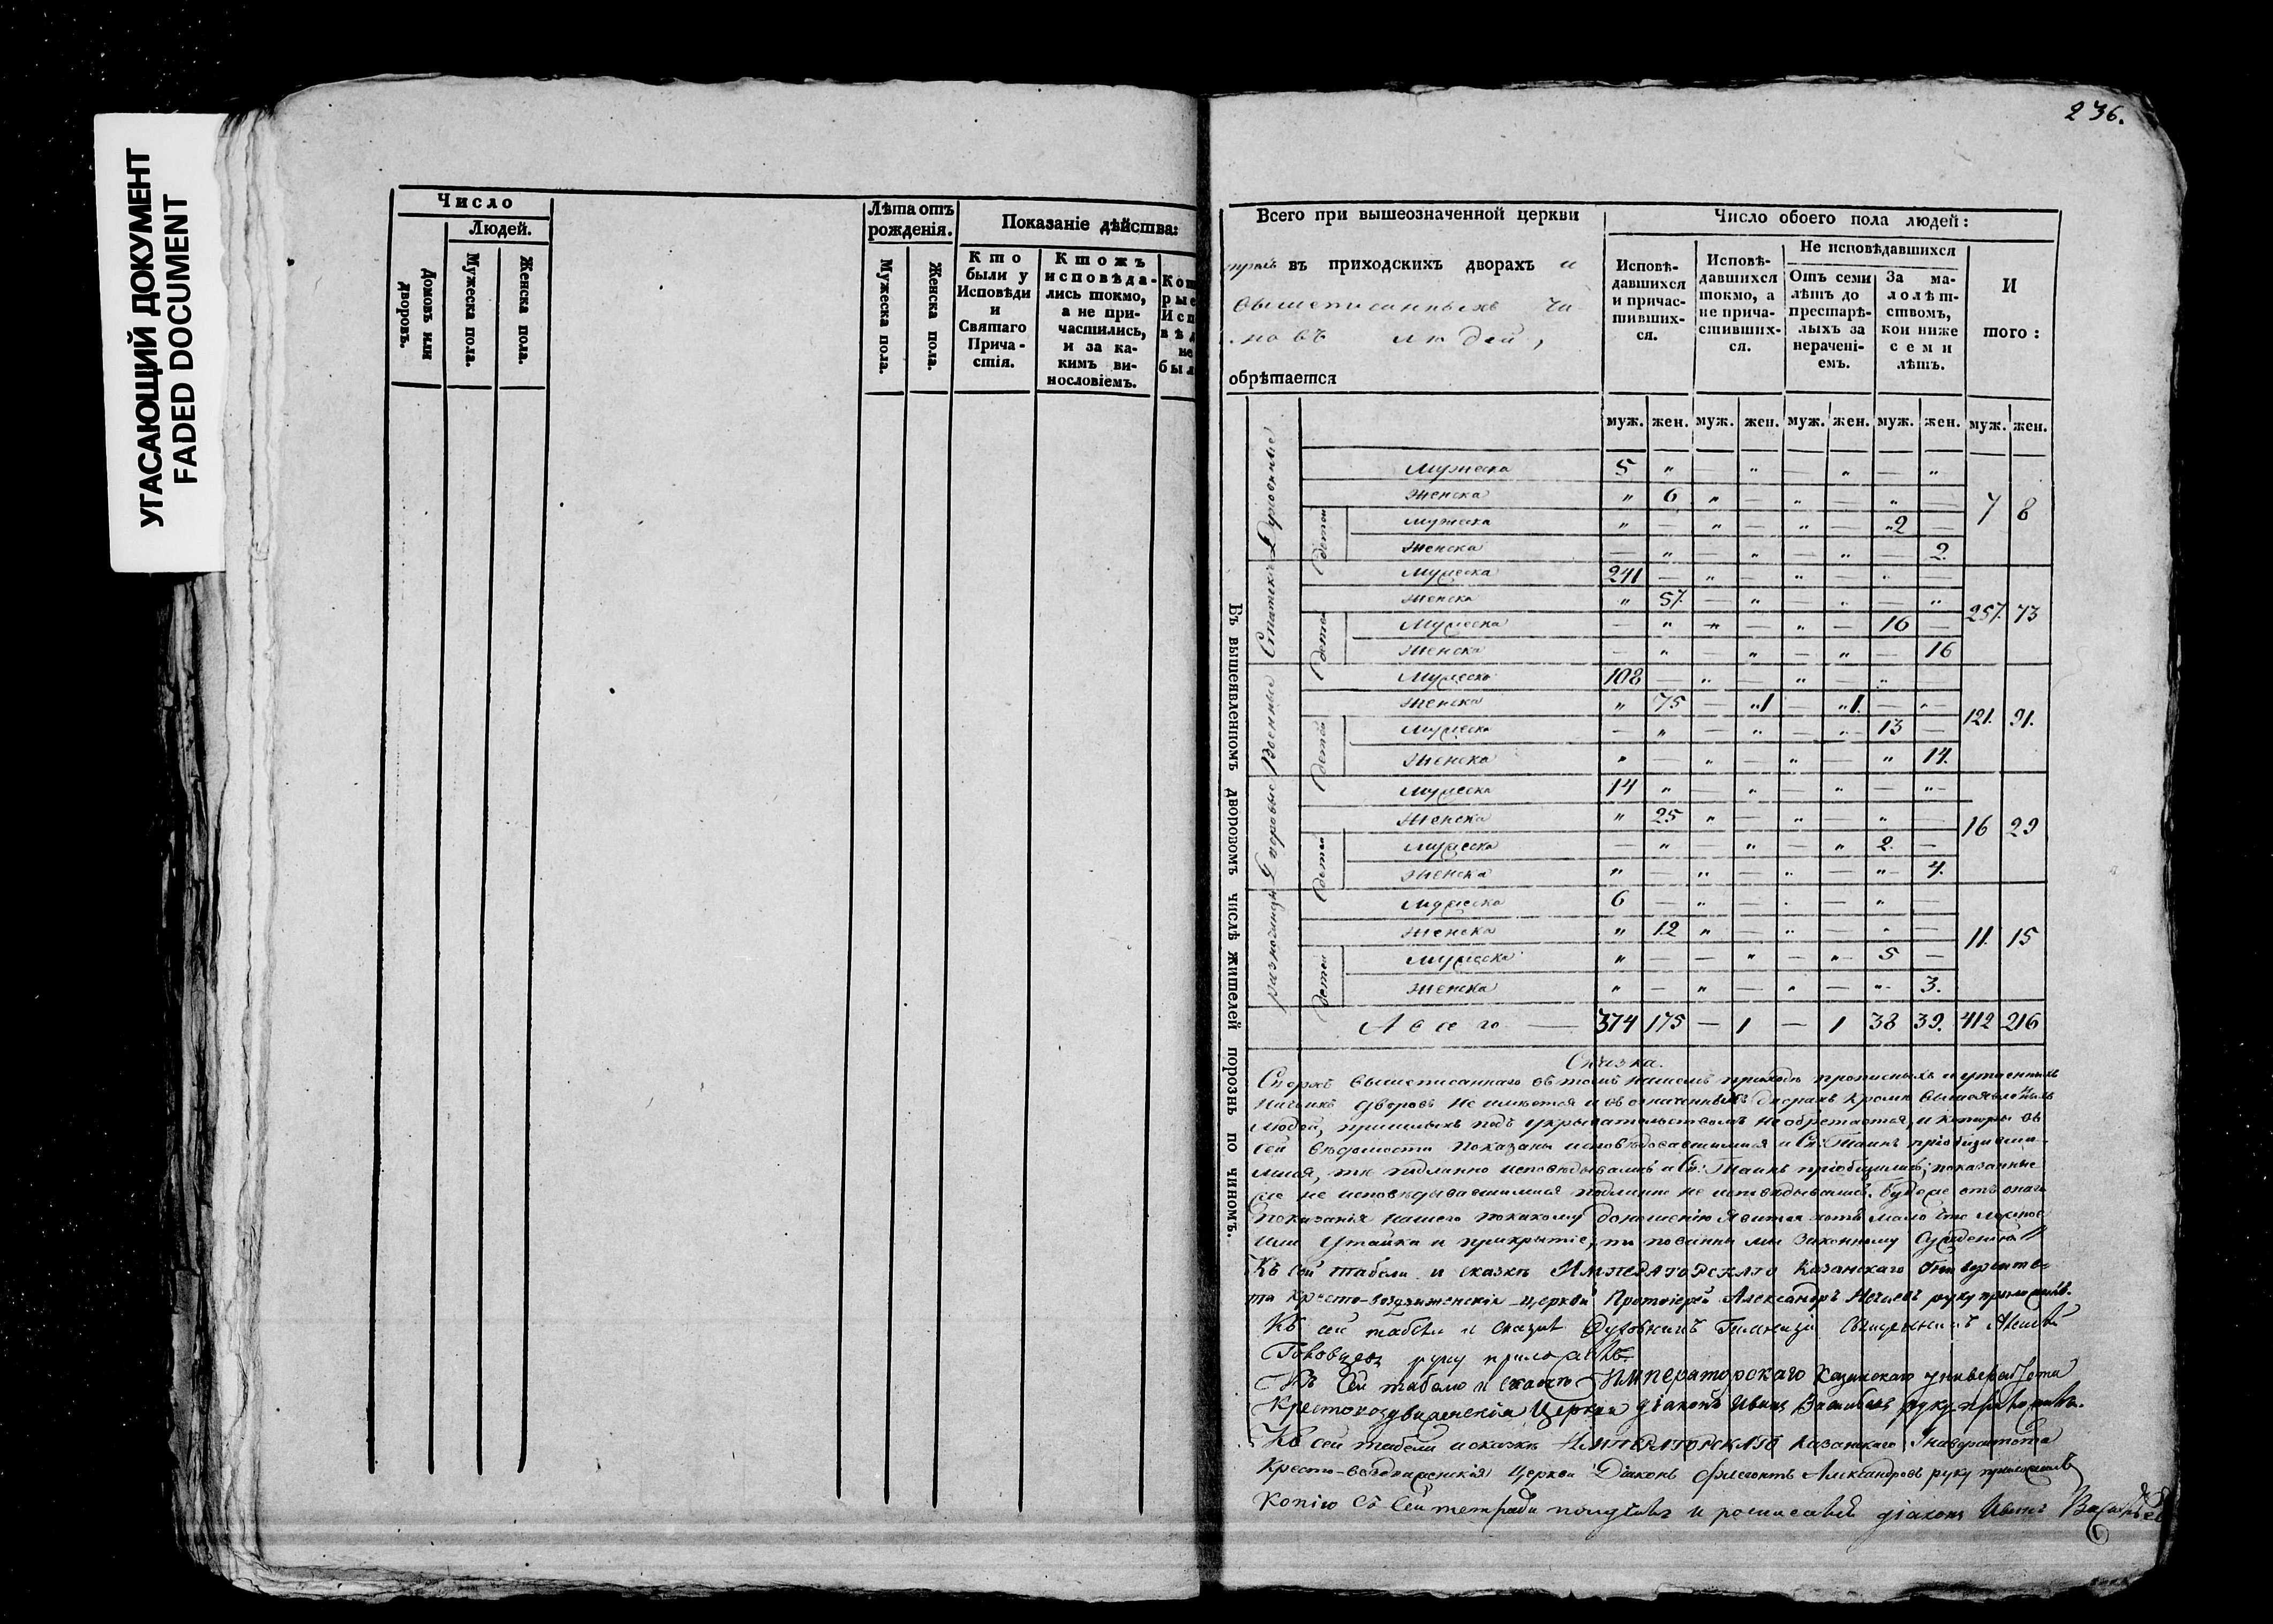 236.
УГАСАЮЩИЙ ДОКУМЕНТ
FADED DOCUMENT
Число
Людей.
Домовъ или дворовъ.
Мужеска пола.
Женска пола.
Лѣта отъ рожденія.
Мужеска пола.
Женска пола.
Показаніе дѣйства:
Кто были у Исповѣди и Святаго Причастія.
Ктожъ исповѣдались токмо, а не причастились, и за какимъ винословіемъ.
Всего при вышеозначенной церкви
въ приходскихъ дворахъ и
вышеписанныхъ чи
новъ людей,
обрѣтается
Число обоего пола людей:
Исповѣдавшихся и причастившихся.
Исповѣдавшихся токмо, а не причастившихся.
Не исповѣдавшихся
Отъ семи лѣтъ до престарѣлыхъ за нераченіемъ.
За малолѣтствомъ, кои ниже семи лѣтъ.
И того:
муж. жен. муж. жен. муж. жен. муж. жен. муж. жен.
Въ вышеявленномъ дворовомъ числѣ жителей порознь по чиномъ.
Духовные
Мужеска 5 „ — „ — „ — „
Женска „ 6 „ — „ — „ —
детей
Мужеска „ — „ — „ — „2 —
Женска — „ — „ — „ 2.
7 8
Статскіе
Мужеска 241 — „ — „ — „ —
Женска „ 57. — „ — „ — „
детей
Мужеска — „ „ — „ — 16 —
Женска — „ — „ — „ — 16
257. 73
Военные
Мужеска 108 — „ — „ — „ —
Женска „ 75 — „1 — „1. — „
детей
Мужеска — „ — „ — „ 13 —
Женска „ — „ — „ — „ 14.
121. 91.
Дворовые
Мужеска 14 „ — „ — „ — „
Женска „ 25 „ — „ — „ —
детей
Мужеска — „ — „ — „ 2. —
Женска „ — „ — „ — „ 4.
16 29
разночинцы
Мужеска 6 — „ — „ — „ —
Женска „ 12 „ — „ — „ —
детей
Мужеска „ — — „ — „ 5 —
Женска „ — „ — „ — „ 3.
11. 15
Всего — 374 175 — 1 — 1 38 39. 412 216
Сказка.
Сверхъ вышеписаннаго въ томъ нашемъ приходѣ прописныхъ и утаенныхъ
дворовъ не имѣется и въ означенныхъ дворахъ кромѣ
людей, пришлыхъ подъ укрывательствомъ не обрѣтается, и которы въ
сей вѣдомости показаны исповѣдовавшимися и Св: Таинъ
мися, тѣ подлинно исповѣдывались и Св: Таинъ пріобщились; показанные
же не исповѣдывавшимися подлинно не исповѣдывались. Буде же отъ онаго
показанія нашего по какому доношенію явится хоть мало что ложное
или утайка и прикрытіе, то повинны мы законному сужденію
Къ сей табели и сказкѣ ИМПЕРАТОРСКАГО Казанскаго Университе-
та Кресто-воздвиженскія церкви Протоіерей Александръ Нечаевъ руку приложилъ.
Къ сей табели и сказкѣ Духовникъ Гимназіи Священникъ
руку приложилъ.
Къ сей табели и сказкѣ Императорскаго Казанскаго университета
Крестовоздвиженскія Церкви діаконъ Иванъ руку приложилъ.
Къ сей табели и сказкѣ ИМПЕРАТОРСКАГО Казанскаго Университета
Кресто-воздвиженскія церкви Діаконъ Александровъ руку приложилъ
Копію съ сей тетради получилъ и росписался діаконъ Иванъ